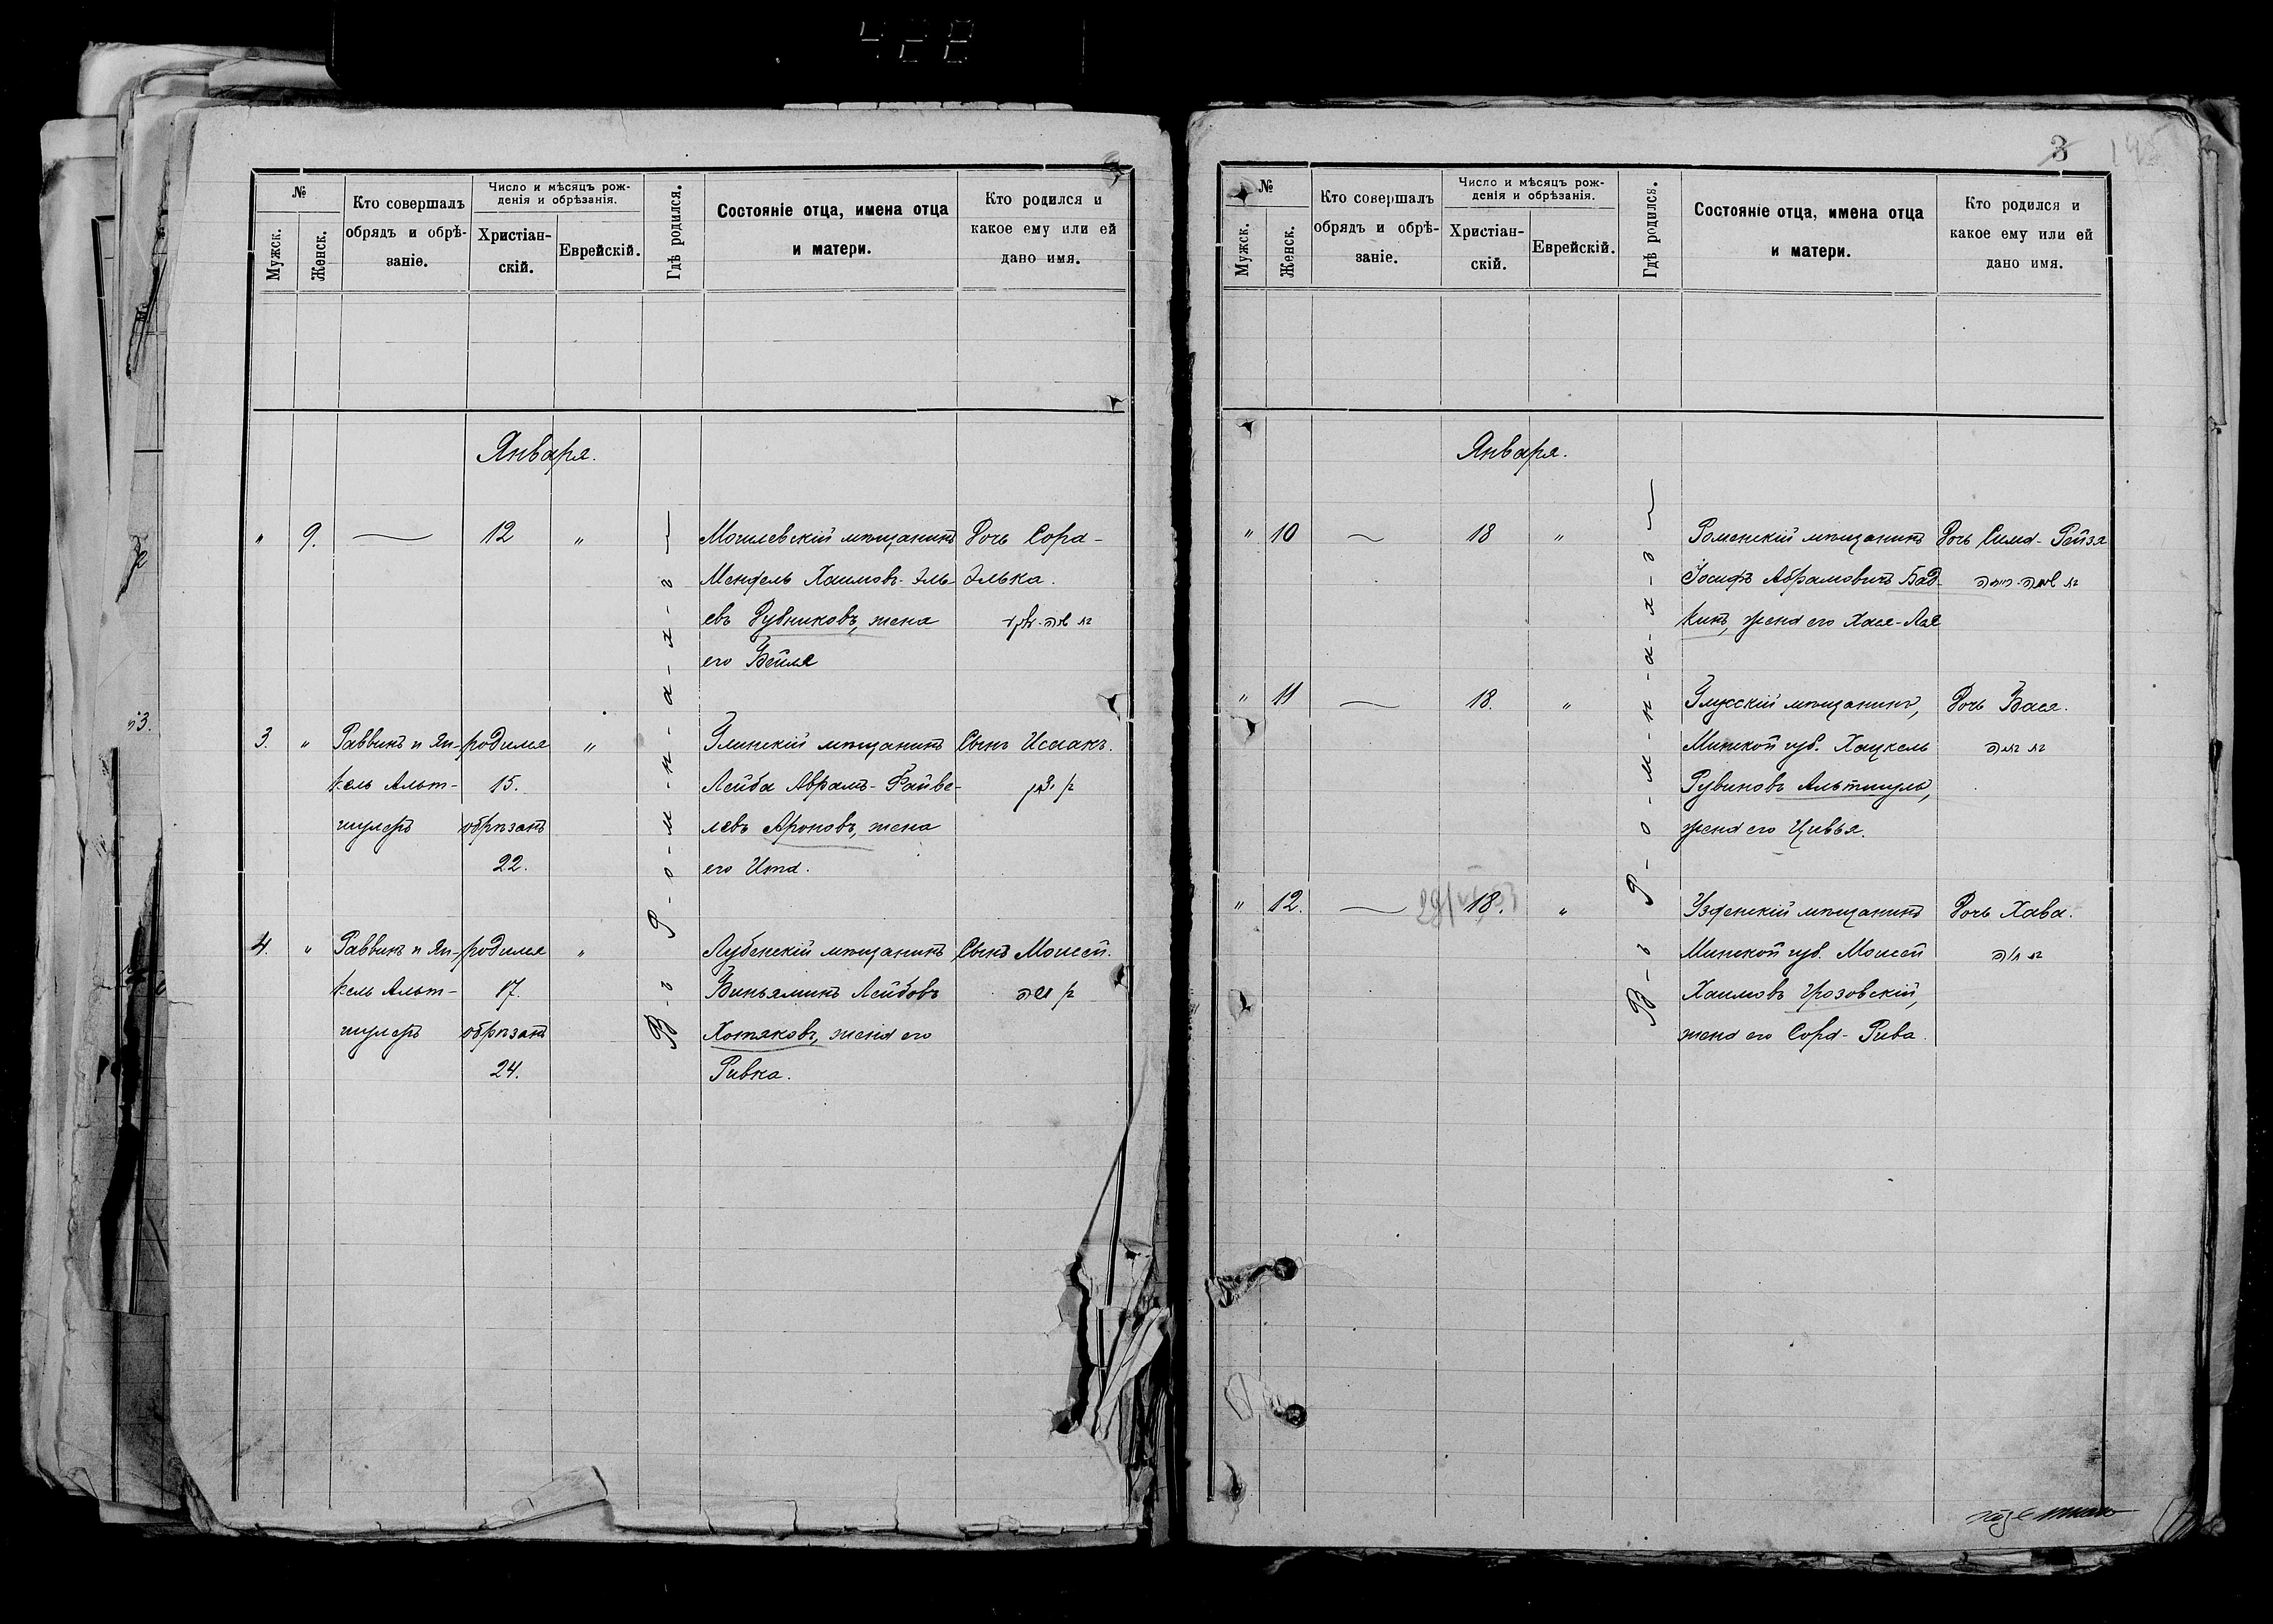 422
№
Мужск.
Женск.
Кто совершалъ
обрядъ и обрѣ-
заніе.
Число и мѣсяцъ рож-
денія и обрѣзанія.
Христіан-
скій.
Еврейскій.
Гдѣ родился.
Состояніе отца, имена отца
и матери.
Кто родился и
какое ему или ей
дано имя.
Января.
В-ъ Р-о-м-н-а-х-ъ
" 9. — 12 "
Могилевскій мѣщанинъ
Мендель Хаимовъ-Эль-
евъ Рубниковъ, жена
его Бейля
Дочь Сора-
Элька.
3. "
Раввинъ и Ян-
кель Альт-
шулеръ
родился
15.
обрѣзанъ
22.
"
Глинскій мѣщанинъ
Лейба Абрамъ-Файве-
левъ Ароновъ, жена
его Ита.
Сынъ Исаакъ.
4. "
Раввинъ и Ян-
кель Альт-
шулеръ
родился
17.
обрѣзанъ
24.
"
Лубенскій мѣщанинъ
Виньяминъ Лейбовъ
Хотяковъ, жена его
Ривка.
Сынъ Моисей.
בן משה
3
№
Мужск.
Женск.
Кто совершалъ
обрядъ и обрѣ-
заніе.
Число и мѣсяцъ рож-
денія и обрѣзанія.
Христіан-
скій.
Еврейскій.
Гдѣ родился.
Состояніе отца, имена отца
и матери.
Кто родился и
какое ему или ей
дано имя.
Января.
В-ъ Р-о-м-н-а-х-ъ
" 10 — 18 "
Роменскій мѣщанинъ
Іосифъ Абрамовичъ Бад-
кинъ, жена его Хая-Лая
Дочь Сима-Рейза
" 11 — 18. "
Глусскій мѣщанинъ,
Минской губ. Хацкель
Рувиновъ Альтшулъ,
жена его Цивья.
Дочь Бася.
" 12. — 18. "
Узденскій мѣщанинъ
Минской губ. Моисей
Хаимовъ Грозовскій,
жена его Сора-Рива.
Дочь Хава.
בת חוה